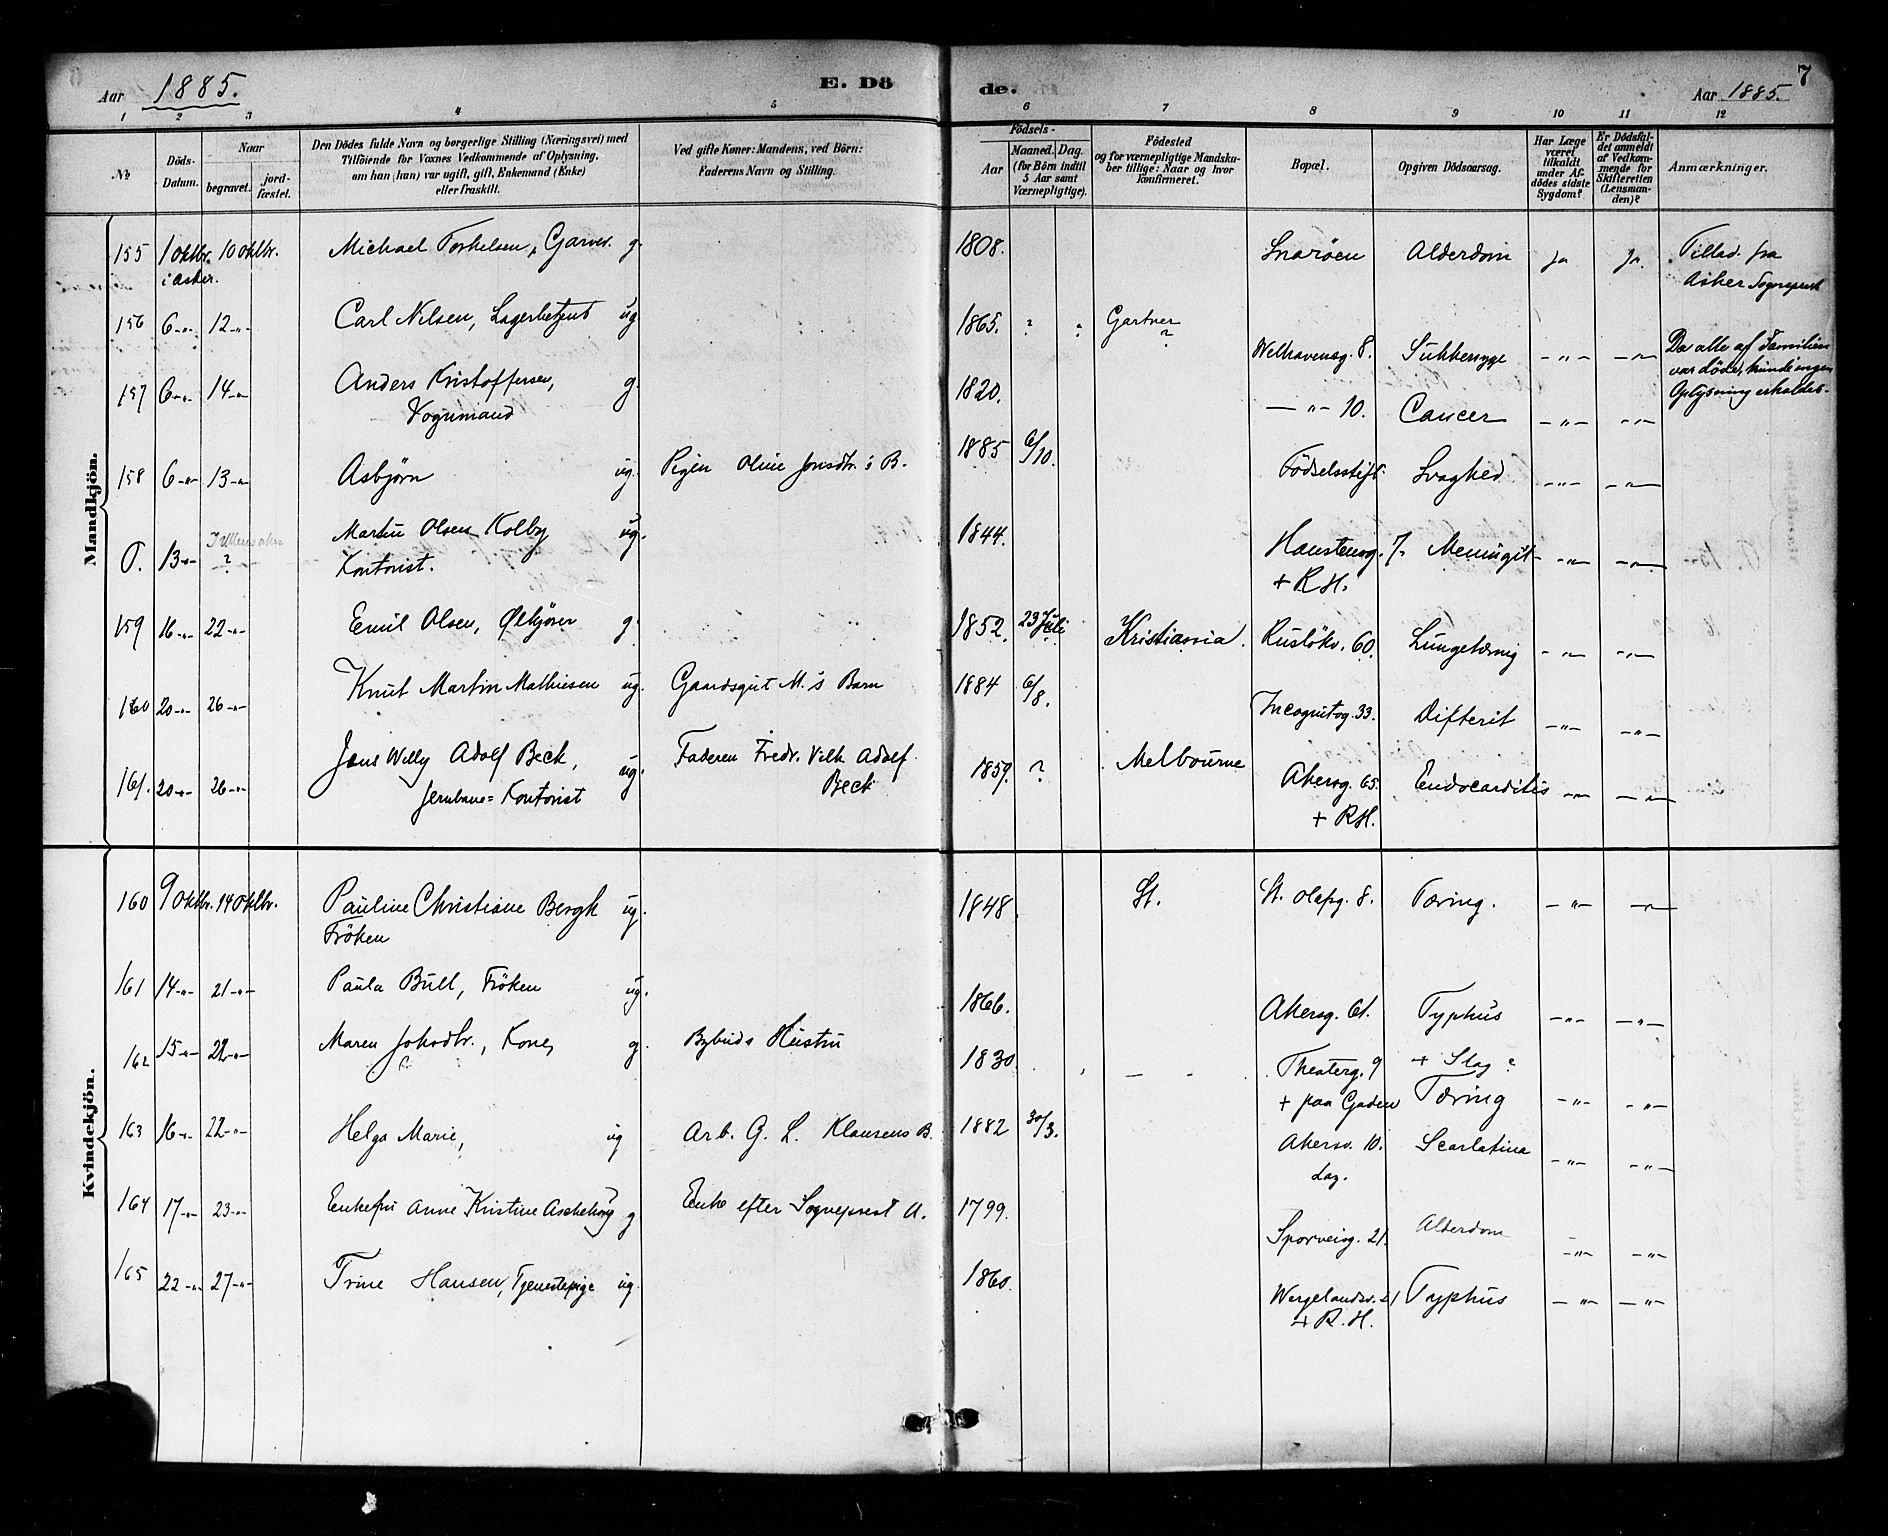 Aar 1885.
E. Döde.
Aar 1885.
7
1 2 3 4 5 6 7 8 9 10 11 12
№
Döds-Datum.
Naar
begravet.
jord-fæstet.
Den Dödes fulde Navn og borgerlige Stilling (Næringsvei) med
Tilföiende for Voxnes Vedkommende af Oplysning,
om han (hun) var ugift, gift, Enkemand (Enke)
eller fraskilt.
Ved gifte Koner: Mandens, ved Börn:
Faderens Navn og Stilling.
Födsels-
Aar
Maaned. Dag.
(for Börn indtil
5 Aar samt
Værnepligtige).
Födested
og for værnepligtige Mandska-
ber tillige: Naar og hvor
konfirmeret.
Bopæl.
Opgiven Dödsaarsag.
Har Læge
været
tilkaldt
under Af-
dödes sidste
Sygdom?
Er Dödsfal-
det anmeldt
af Vedkom-
mende for
Skifteretten
(Lensman-
den)?
Anmærkninger.
Mandkjön.
155 1 Oktbr. 10 Oktbr. Michael Torkelsen, Garver. g. 1808. Snaröen Alderdom ja ja. Tillad. fra
i Asker. Asker Sogneprest
156 6 -"- 12 -"- Carl Nilsen, Lagerbetjent ug 1865. ? : Gartner ? Welhavensg. 8. Sukkersyge -"- -"- Da alle af Familien
var döde, kunde ingen
Oplysning erholdes.
157 6 -"- 14 -"- Anders Kristoffersen, g. 1820. -"- 10. Cancer -"- -"-
Vognmand
158 6 -"- 13 -"- Asbjörn ug. Pigen Oline Jonsdtr.'s B. 1885 6/10. Födselsstift. Svaghed -"- -"-
O. 13 -"- ? Martin Olsen Kolby ug. 1844. Hanstensg. 7. Meningit -"- -"-
Kontorist. + R.H.
159 16 -"- 22 -"- Emil Olsen, Ølkjörer g. 1852. 23 Juli Kristiania. Ruslökv. 60. Lungetæring -"- -"-
160 20 -"- 26 -"- Knut Martin Mathiesen ug. Gaardsgut M.'s Barn 1884 6/8. Incognitog. 33. Difterit -"- -"-
161. 20 -"- 26 -"- Jens Willy Adolf Beck, ug. Faderen Fredr. Vilh. Adolf 1859. ? Melbourne Akersg. 65. Endocarditis -"- -"-
Jernbane-Kontorist Beck + RH.
Kvindekjön.
160 9 Oktbr. 14 Oktbr. Pauline Christiane Bergh ug. 1848. St. St. Olafsg. 8. Tæring. -"- -"-
Fröken
161 14 -"- 21 -"- Paula Bull, Fröken ug. 1866. Akersg. 61. Typhus -"- -"-
162 15 -"- 22 -"- Maren Johsdtr., Kone, g. Bybuds Hustru 1830. Theaterg. 9 + Slag ?
+ paa Gaden Tæring -"- -"-
163 16 -"- 22 -"- Helga Marie, ug Arb. G. L. Klausens B. 1882 30/3. Akersv. 10. Scarlatina -"- -"-
Laz.
164 17 -"- 23 -"- Enkefru Anne Kristine Aschehoug g Enke efter Sogneprest A. 1799. Sporveisg. 21. Alderdom -"- -"-
165 22 -"- 27 -"- Trine Hansen, Tjenestepige ug. 1860. Wergelandsv. 21 Typhus -"- -"-
+ R.H.